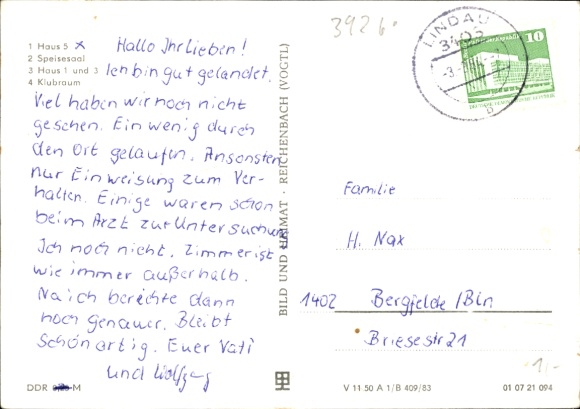 1 Haus 5 x
2 Speisesaal
3 Haus 1 und 3
4 Klubraum
Hallo Ihr Lieben!
Ich bin gut gelandet.
Viel haben wir noch nicht
gesehen. Ein wenig durch
den Ort gelaufen. Ansonsten
nur Einweisung zum Ver-
halten. Einige waren schon
beim Arzt zur Untersuchung
Ich noch nicht. Zimmer ist
wie immer außerhalb.
Na ich berichte dann
noch genauer. Bleibt
schön artig. Euer Vati
und Wolfgang
DDR M
BILD UND HEIMAT · REICHENBACH (VOGTL)
392 b
LINDAU
3402
b
10
Familie
H. Nax
1402 Bergfelde/Bln
Briesestr 21
-1,-
V 11 50 A 1/B 409/83
01 07 21 094